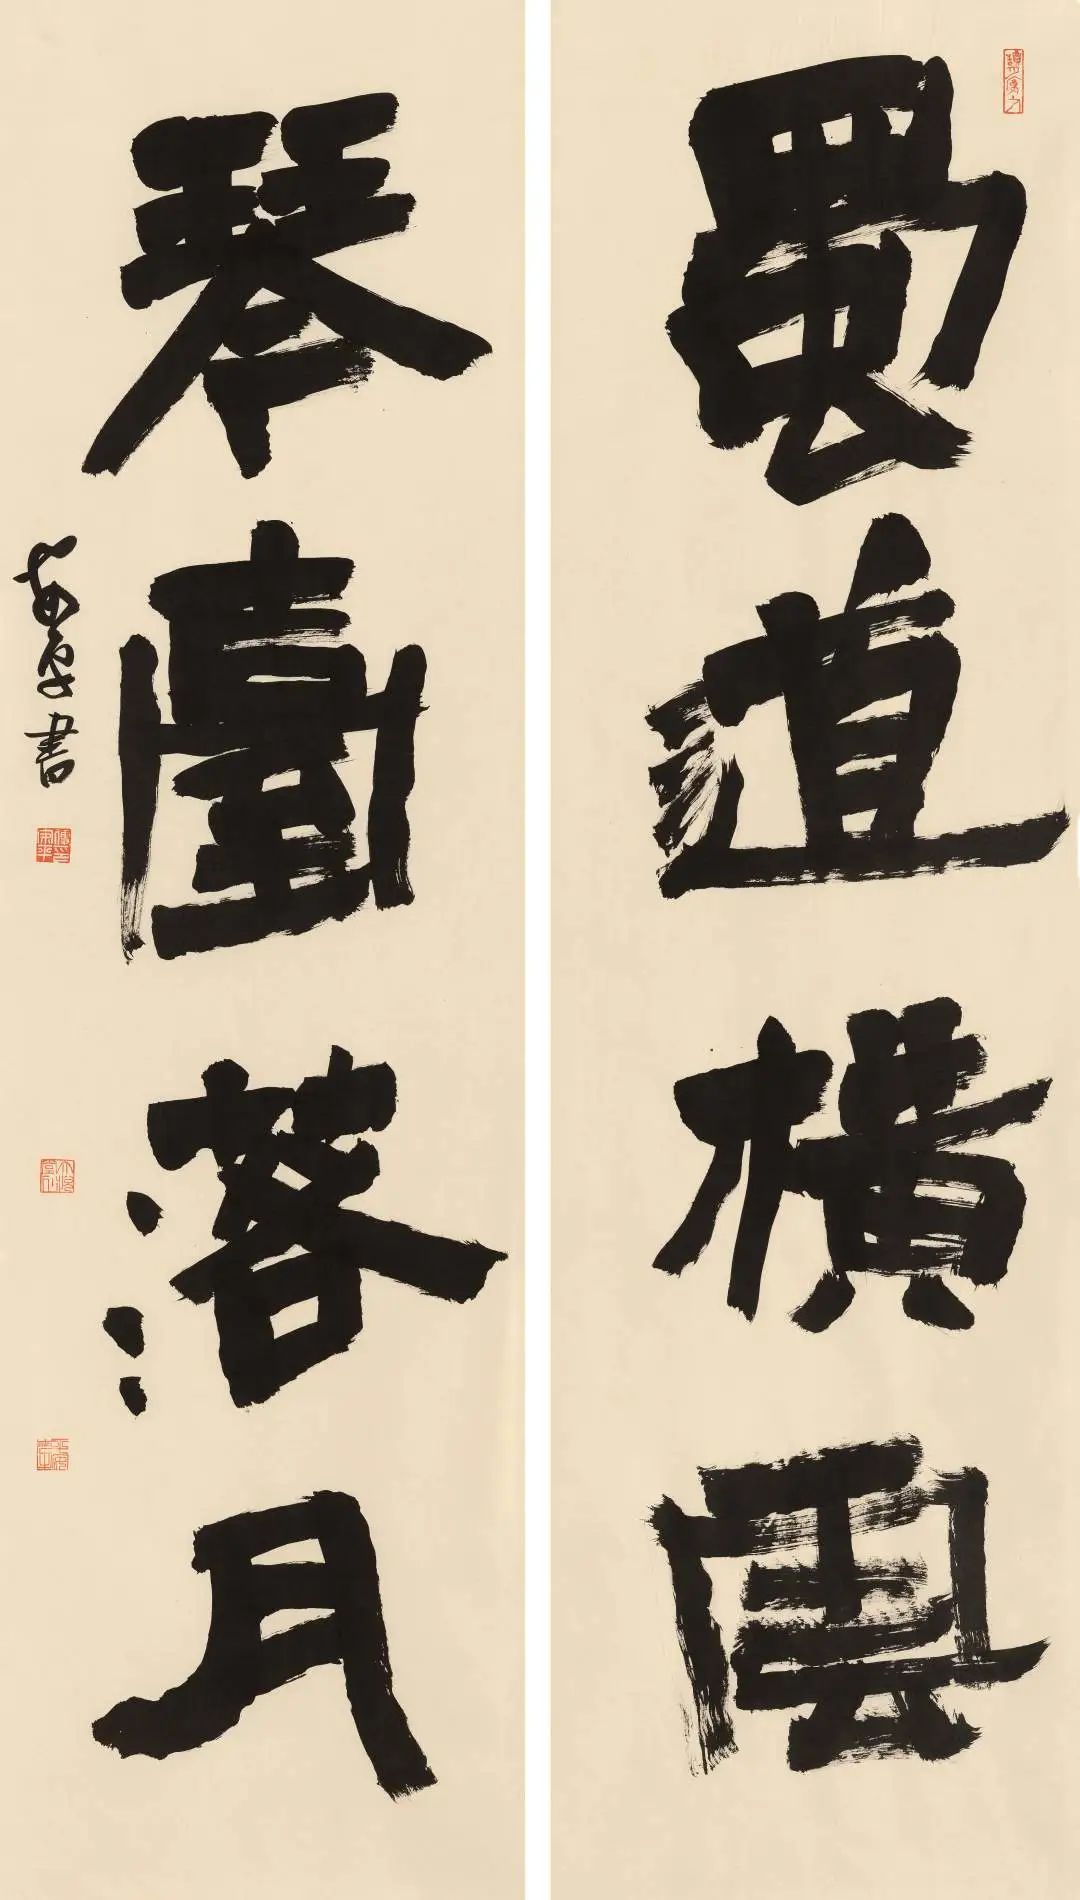 蜀道橫雲
琴臺落月
書